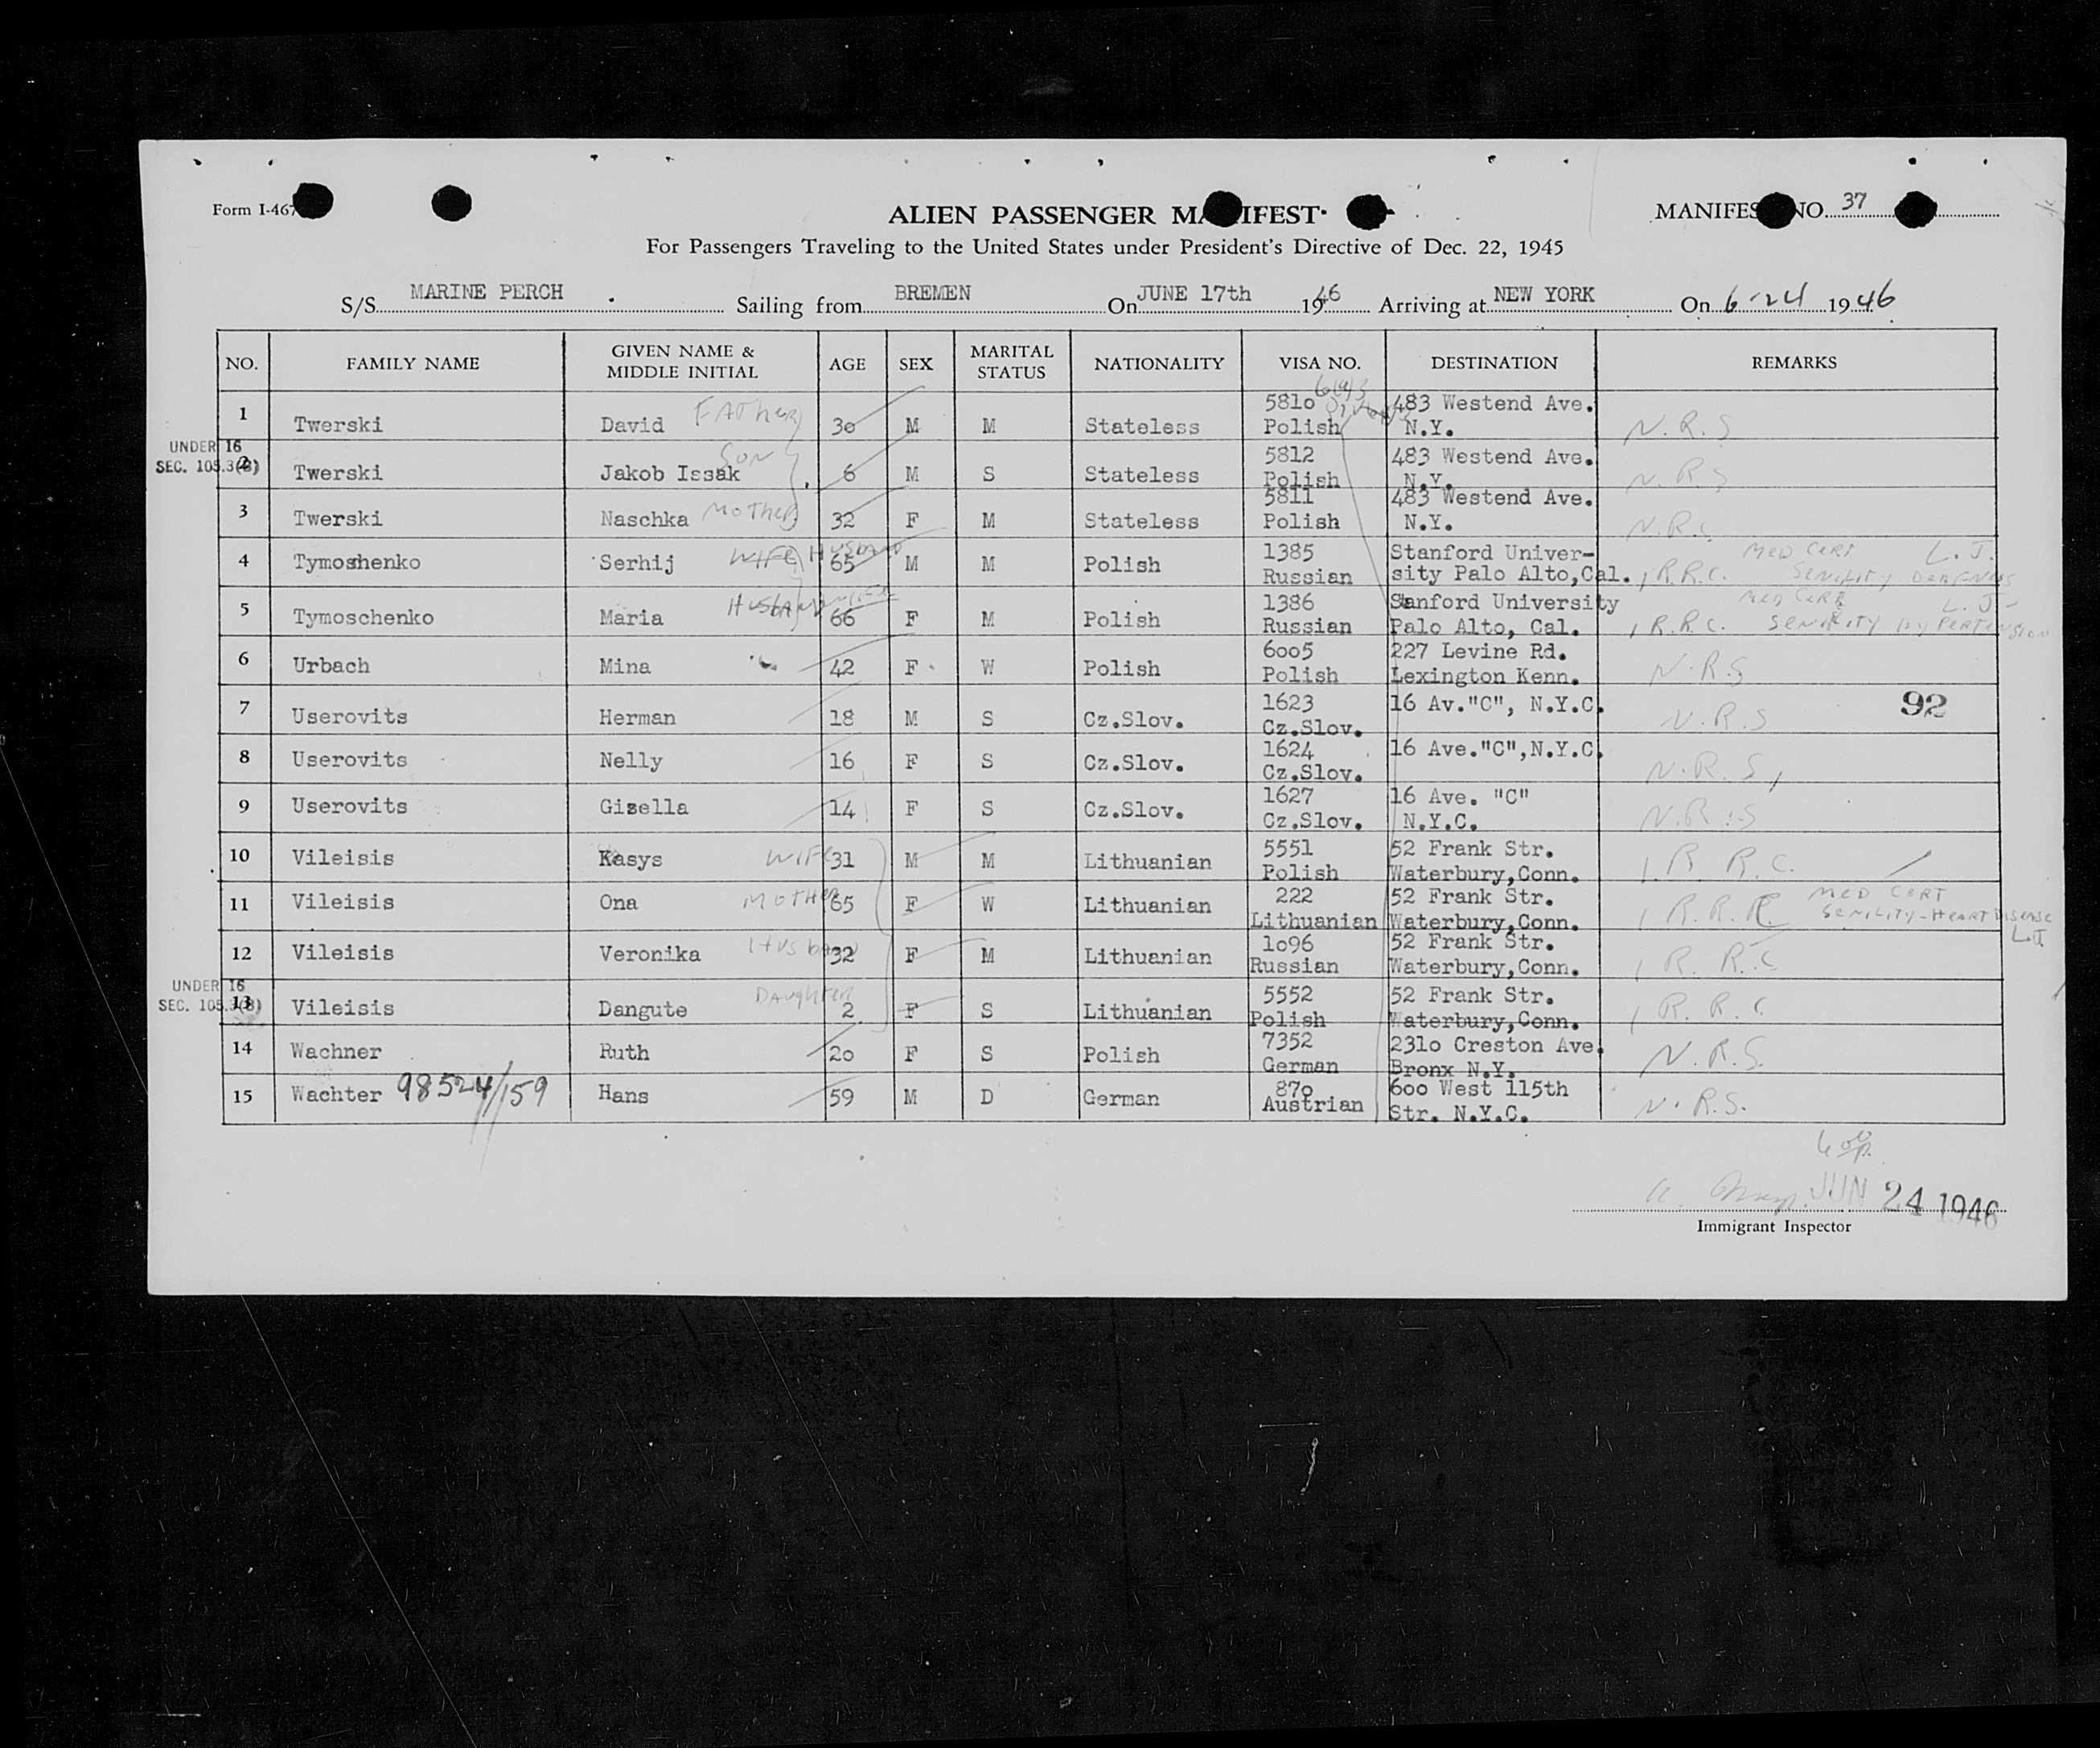 Form I-467
ALIEN PASSENGER MANIFEST
MANIFEST NO. 37
For Passengers Traveling to the United States under President's Directive of Dec. 22, 1945
S/S MARINE PERCH Sailing from BREMEN On JUNE 17th 1946 Arriving at NEW YORK On 6-24 1946
NO. FAMILY NAME GIVEN NAME & MIDDLE INITIAL AGE SEX MARITAL STATUS NATIONALITY VISA NO. DESTINATION REMARKS
1 Twerski David FATHER 30 M M Stateless 5810 Polish 483 Westend Ave. N.Y. N.R.S
UNDER 16
SEC. 105.3(B)
2 Twerski Jakob Issak SON 6 M S Stateless 5812 Polish 483 Westend Ave. N.Y. N.R.S
3 Twerski Naschka MOTHER 32 F M Stateless 5811 Polish 483 Westend Ave. N.Y. N.R.S
4 Tymoshenko Serhij WIFE HUSBAND 65 M M Polish 1385 Russian Stanford Univer- sity Palo Alto,Cal. R.R.C. MED CERT SENILITY DEAFNESS L.J.
5 Tymoschenko Maria HUSBAND WIFE 66 F M Polish 1386 Russian Stanford University Palo Alto, Cal. R.R.C. MED CERT SENILITY HYPERTENSION L.J.
6 Urbach Mina 42 F W Polish 6005 Polish 227 Levine Rd. Lexington Kenn. N.R.S
7 Userovits Herman 18 M S Cz.Slov. 1623 Cz.Slov. 16 Av."C", N.Y.C. N.R.S 92
8 Userovits Nelly 16 F S Cz.Slov. 1624 Cz.Slov. 16 Ave."C",N.Y.C. N.R.S,
9 Userovits Gisella 14 F S Cz.Slov. 1627 Cz.Slov. 16 Ave. "C" N.Y.C. N.R.S
10 Vileisis Kasys WIFE 31 M M Lithuanian 5551 Polish 52 Frank Str. Waterbury,Conn. R.R.C.
11 Vileisis Ona MOTHER 65 F W Lithuanian 222 Lithuanian 52 Frank Str. Waterbury,Conn. R.R.C MED CERT SENILITY-HEART DISEASE L.J.
12 Vileisis Veronika HUSBAND 32 F M Lithuanian 1096 Russian 52 Frank Str. Waterbury,Conn. R.R.C
UNDER 16
SEC. 105.3(B)
13 Vileisis Dangute DAUGHTER 2 F S Lithuanian 5552 Polish 52 Frank Str. Waterbury,Conn. R.R.C
14 Wachner Ruth 20 F S Polish 7352 German 2310 Creston Ave. Bronx N.Y. N.R.S.
15 Wachter 98524/159 Hans 59 M D German 870 Austrian 600 West 115th Str. N.Y.C. N.R.S.
JUN 24 1946
Immigrant Inspector